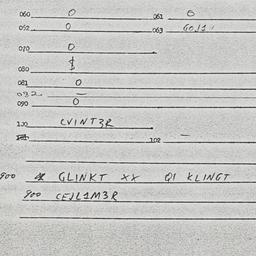 060 0 061 0
062 0 063
070 0
080
081 0
082 —
090 0
100 CVINT3R
102 —
900 GLINKT XX QI KLINGT
900 CELL1M3R